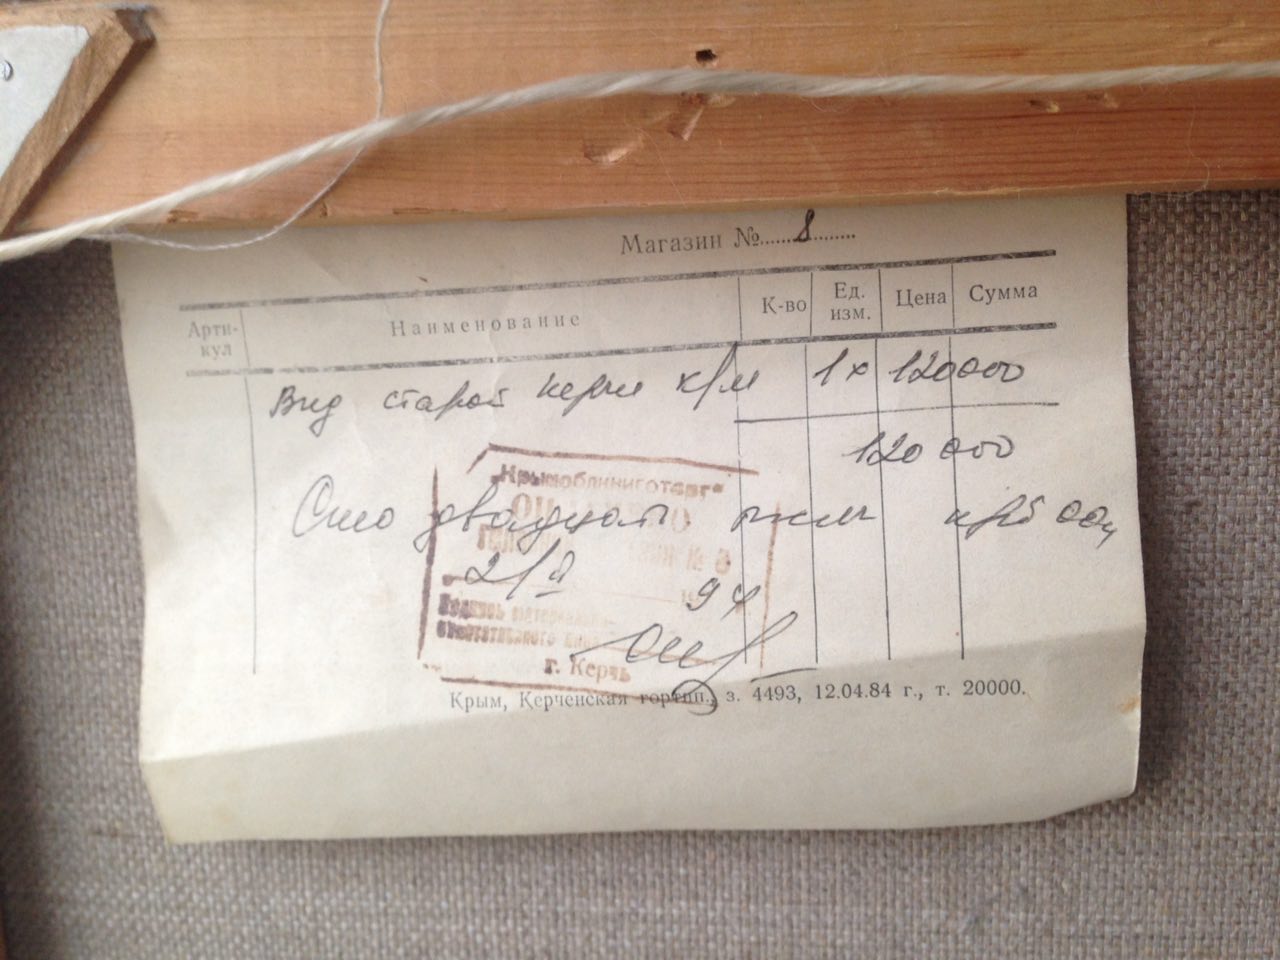 Магазин № 8
Арти-кул Наименование К-во Ед. изм. Цена Сумма
Вид старой Керчи к/м 1 х 120000
120 000
Сто двадцать тысяч крб 00
„Крымоблкниготорг"
№ 8
21 94
Подпись материально-
ответственного лица
г. Керчь
Крым, Керченская гортип., з. 4493, 12.04.84 г., т. 20000.